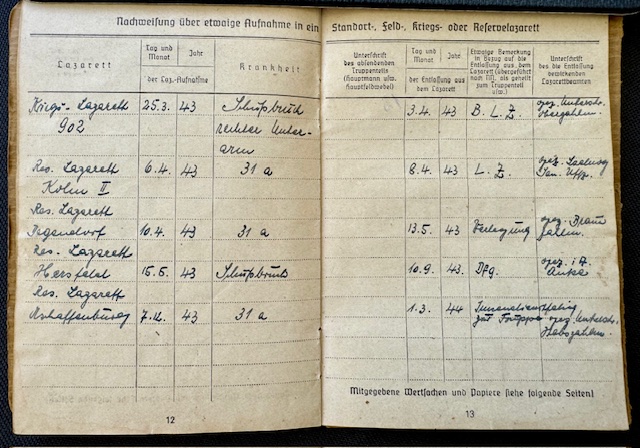 Nachweisung über etwaige Aufnahme in ein Standort-, Feld-, Kriegs- oder Reservelazarett
Lazarett
Tag und Monat
Jahr
der Laz.-Aufnahme
Krankheit
Unterschrift
des absendenden
Truppenteils
(Hauptmann usw.
Hauptfeldwebel)
Tag und Monat
Jahr
der Entlassung aus
dem Lazarett
Etwaige Bemerkung
in Bezug auf die
Entlassung aus dem
Lazarett (übergeführt
nach [M], als geheilt
zum Truppenteil
usw.)
Unterschrift
des die Entlassung
bewirkenden
Lazarettbeamten
Kriegs-Lazarett 25.3. 43 Schußbruch 3.4. 43 B. L. Z. gez. Unterschr.
902 rechter Unter- Oberzahlm.
arm
Res. Lazarett 6.4. 43 31 a 8.4. 43 L. Z. gez.
Köln II San. Uffz.
Res. Lazarett
Degendorf 10.4. 43 31 a 13.5. 43 Verlegung gez. Zahlm.
Res. Lazarett
Hersfeld 15.5. 43 Schußbruch 10.9. 43. gez. i.A.
Res. Lazarett
Aschaffenburg 7.12. 43 31 a 1.3. 44
zur Truppe gez. Unterschr.
Stabszahlm.
Mitgegebene Wertsachen und Papiere siehe folgende Seiten!
12
13